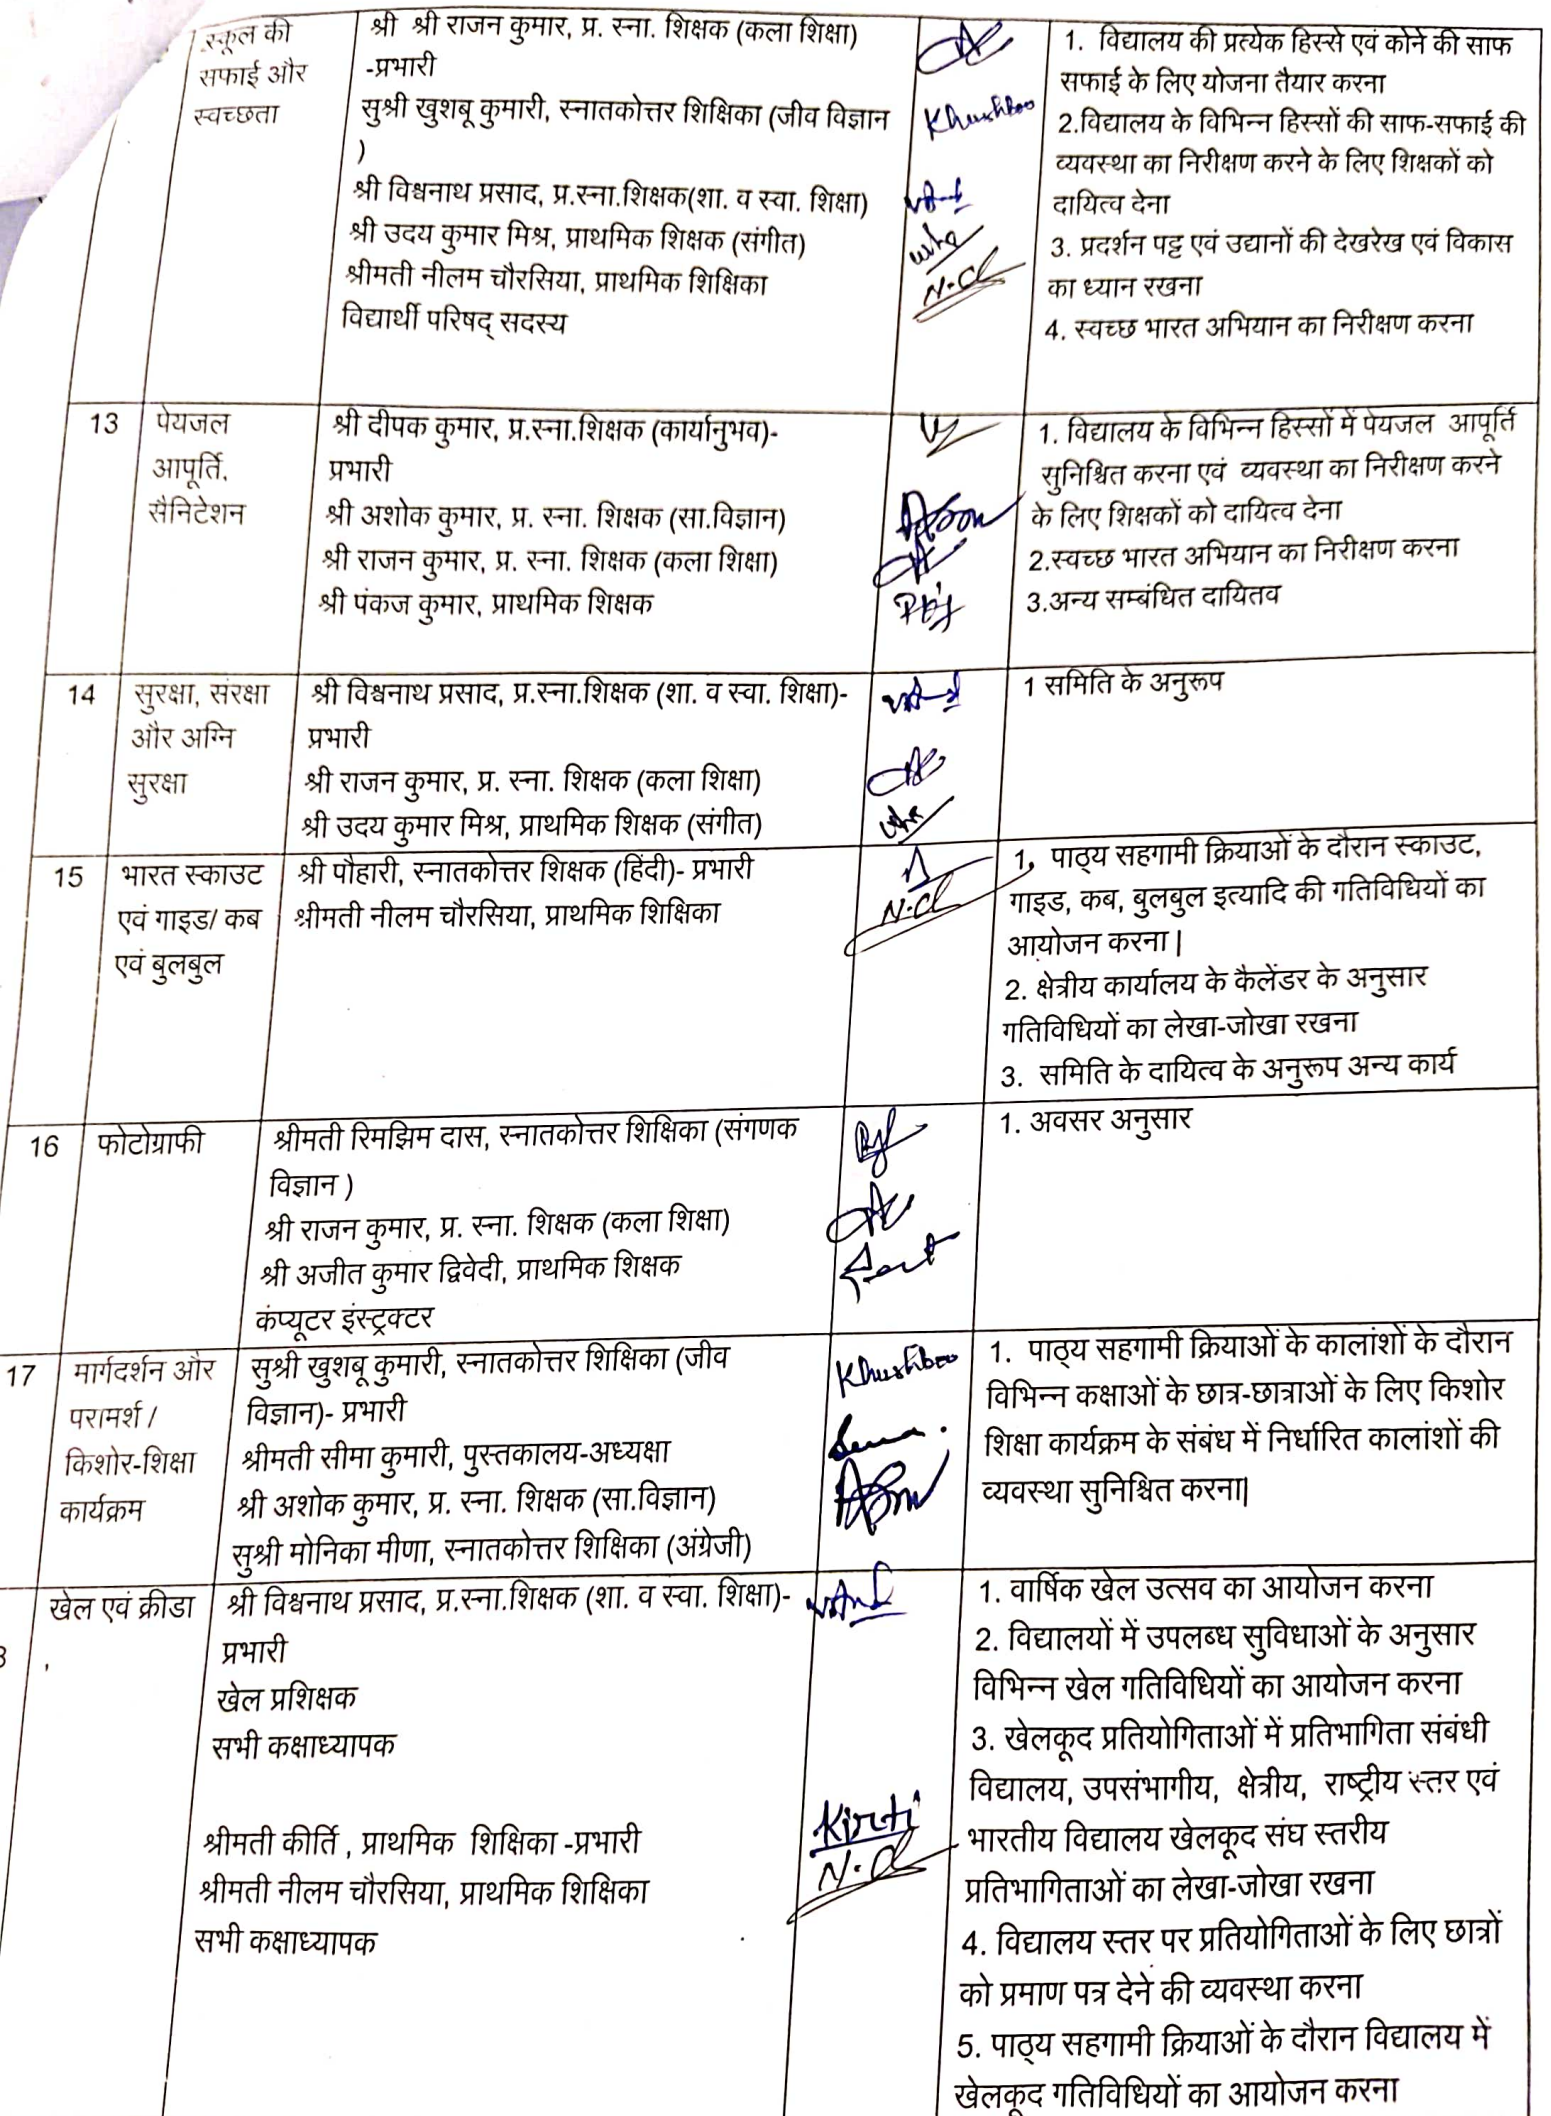 स्कूल की
सफाई और
स्वच्छता
श्री श्री राजन कुमार, प्र. स्ना. शिक्षक (कला शिक्षा)
-प्रभारी
सुश्री खुशबू कुमारी, स्नातकोत्तर शिक्षिका (जीव विज्ञान
)
श्री विश्वनाथ प्रसाद, प्र.स्ना.शिक्षक(शा. व स्वा. शिक्षा)
श्री उदय कुमार मिश्र, प्राथमिक शिक्षक (संगीत)
श्रीमती नीलम चौरसिया, प्राथमिक शिक्षिका
विद्यार्थी परिषद् सदस्य
Khushboo
N.Cl
1. विद्यालय की प्रत्येक हिस्से एवं कोने की साफ
सफाई के लिए योजना तैयार करना
2.विद्यालय के विभिन्न हिस्सों की साफ-सफाई की
व्यवस्था का निरीक्षण करने के लिए शिक्षकों को
दायित्व देना
3. प्रदर्शन पट्ट एवं उद्यानों की देखरेख एवं विकास
का ध्यान रखना
4. स्वच्छ भारत अभियान का निरीक्षण करना
13
पेयजल
आपूर्ति,
सैनिटेशन
श्री दीपक कुमार, प्र.स्ना.शिक्षक (कार्यानुभव)-
प्रभारी
श्री अशोक कुमार, प्र. स्ना. शिक्षक (सा.विज्ञान)
श्री राजन कुमार, प्र. स्ना. शिक्षक (कला शिक्षा)
श्री पंकज कुमार, प्राथमिक शिक्षक
1. विद्यालय के विभिन्न हिस्सों में पेयजल आपूर्ति
सुनिश्चित करना एवं व्यवस्था का निरीक्षण करने
के लिए शिक्षकों को दायित्व देना
2.स्वच्छ भारत अभियान का निरीक्षण करना
3.अन्य सम्बंधित दायितव
14
सुरक्षा, संरक्षा
और अग्नि
सुरक्षा
श्री विश्वनाथ प्रसाद, प्र.स्ना.शिक्षक (शा. व स्वा. शिक्षा)-
प्रभारी
श्री राजन कुमार, प्र. स्ना. शिक्षक (कला शिक्षा)
श्री उदय कुमार मिश्र, प्राथमिक शिक्षक (संगीत)
1 समिति के अनुरूप
15
भारत स्काउट
एवं गाइड/ कब
एवं बुलबुल
श्री पौहारी, स्नातकोत्तर शिक्षक (हिंदी)- प्रभारी
श्रीमती नीलम चौरसिया, प्राथमिक शिक्षिका
N.Cl
1. पाठ्य सहगामी क्रियाओं के दौरान स्काउट,
गाइड, कब, बुलबुल इत्यादि की गतिविधियों का
आयोजन करना|
2. क्षेत्रीय कार्यालय के कैलेंडर के अनुसार
गतिविधियों का लेखा-जोखा रखना
3. समिति के दायित्व के अनुरूप अन्य कार्य
16
फोटोग्राफी
श्रीमती रिमझिम दास, स्नातकोत्तर शिक्षिका (संगणक
विज्ञान )
श्री राजन कुमार, प्र. स्ना. शिक्षक (कला शिक्षा)
श्री अजीत कुमार द्विवेदी, प्राथमिक शिक्षक
कंप्यूटर इंस्ट्रक्टर
1. अवसर अनुसार
17
मार्गदर्शन और
परामर्श /
किशोर-शिक्षा
कार्यक्रम
सुश्री खुशबू कुमारी, स्नातकोत्तर शिक्षिका (जीव
विज्ञान)- प्रभारी
श्रीमती सीमा कुमारी, पुस्तकालय-अध्यक्षा
श्री अशोक कुमार, प्र. स्ना. शिक्षक (सा.विज्ञान)
सुश्री मोनिका मीणा, स्नातकोत्तर शिक्षिका (अंग्रेजी)
Khushboo
1. पाठ्य सहगामी क्रियाओं के कालांशों के दौरान
विभिन्न कक्षाओं के छात्र-छात्राओं के लिए किशोर
शिक्षा कार्यक्रम के संबंध में निर्धारित कालांशों की
व्यवस्था सुनिश्चित करना|
खेल एवं क्रीडा
श्री विश्वनाथ प्रसाद, प्र.स्ना.शिक्षक (शा. व स्वा. शिक्षा)-
प्रभारी
खेल प्रशिक्षक
सभी कक्षाध्यापक
श्रीमती कीर्ति , प्राथमिक शिक्षिका -प्रभारी
श्रीमती नीलम चौरसिया, प्राथमिक शिक्षिका
सभी कक्षाध्यापक
Kirti
N.Cl
1. वार्षिक खेल उत्सव का आयोजन करना
2. विद्यालयों में उपलब्ध सुविधाओं के अनुसार
विभिन्न खेल गतिविधियों का आयोजन करना
3. खेलकूद प्रतियोगिताओं में प्रतिभागिता संबंधी
विद्यालय, उपसंभागीय, क्षेत्रीय, राष्ट्रीय स्तर एवं
भारतीय विद्यालय खेलकूद संघ स्तरीय
प्रतिभागिताओं का लेखा-जोखा रखना
4. विद्यालय स्तर पर प्रतियोगिताओं के लिए छात्रों
को प्रमाण पत्र देने की व्यवस्था करना
5. पाठ्य सहगामी क्रियाओं के दौरान विद्यालय में
खेलकूद गतिविधियों का आयोजन करना